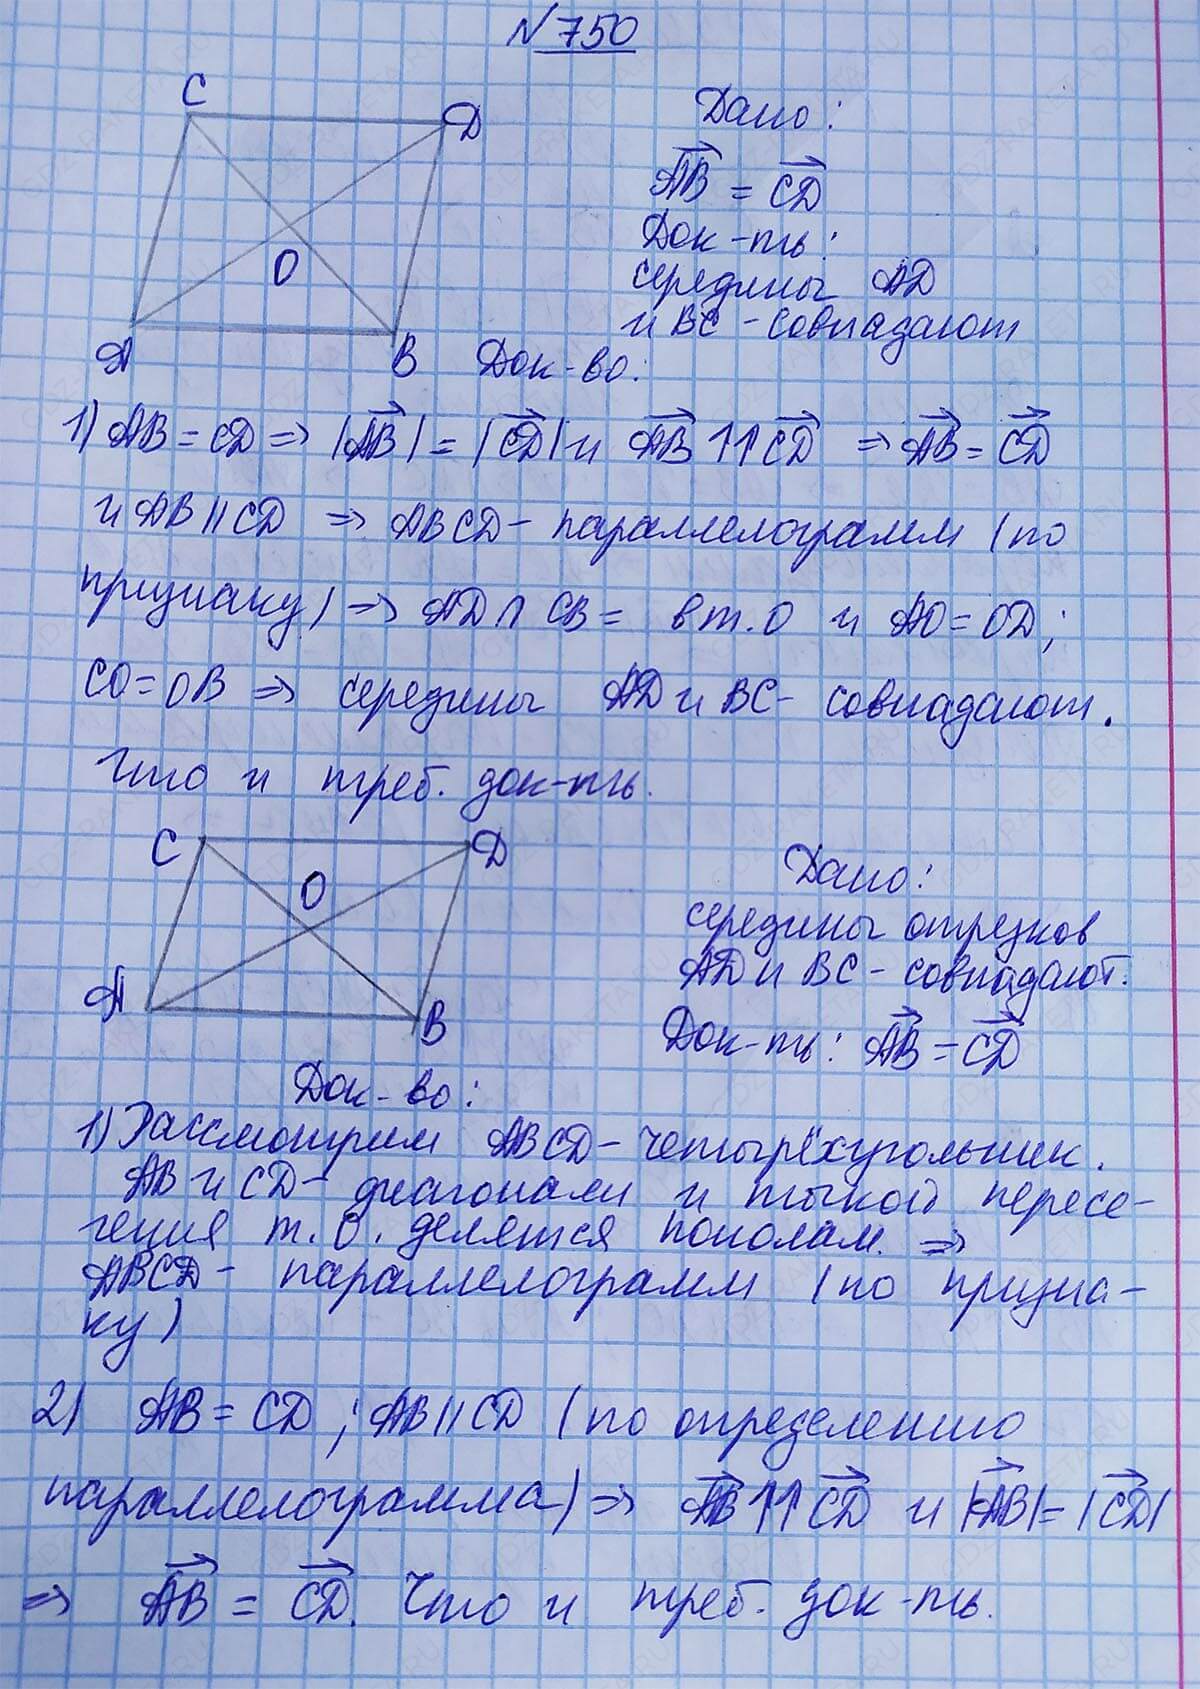 N 750
C
D
O
A
B
Дано:
A͞B = C͞D
Док-ть:
середины AD
и BC - совпадают
Док-во:
1) AB = CD ⇒ |A͞B| = |C͞D| и A͞B ↑↑ C͞D ⇒ A͞B = C͞D
и AB || CD ⇒ ABCD - параллелограмм (по
признаку) ⇒ AD ∩ CB = в т. O и AO = OD;
CO = OB ⇒ середины AD и BC - совпадают.
Что и треб. док-ть.
C
D
O
A
B
Дано:
середины отрезков
AD и BC - совпадают.
Док-ть: A͞B = C͞D
Док-во:
1) Рассмотрим ABCD - четырёхугольник.
AB и CD - диагонали и точкой пересе-
чения т. O. делятся пополам. ⇒
ABCD - параллелограмм (по призна-
ку)
2) AB = CD ; AB || CD (по определению
параллелограмма) ⇒ A͞B ↑↑ C͞D и |A͞B| = |C͞D|
⇒ A͞B = C͞D. Что и треб. док-ть.